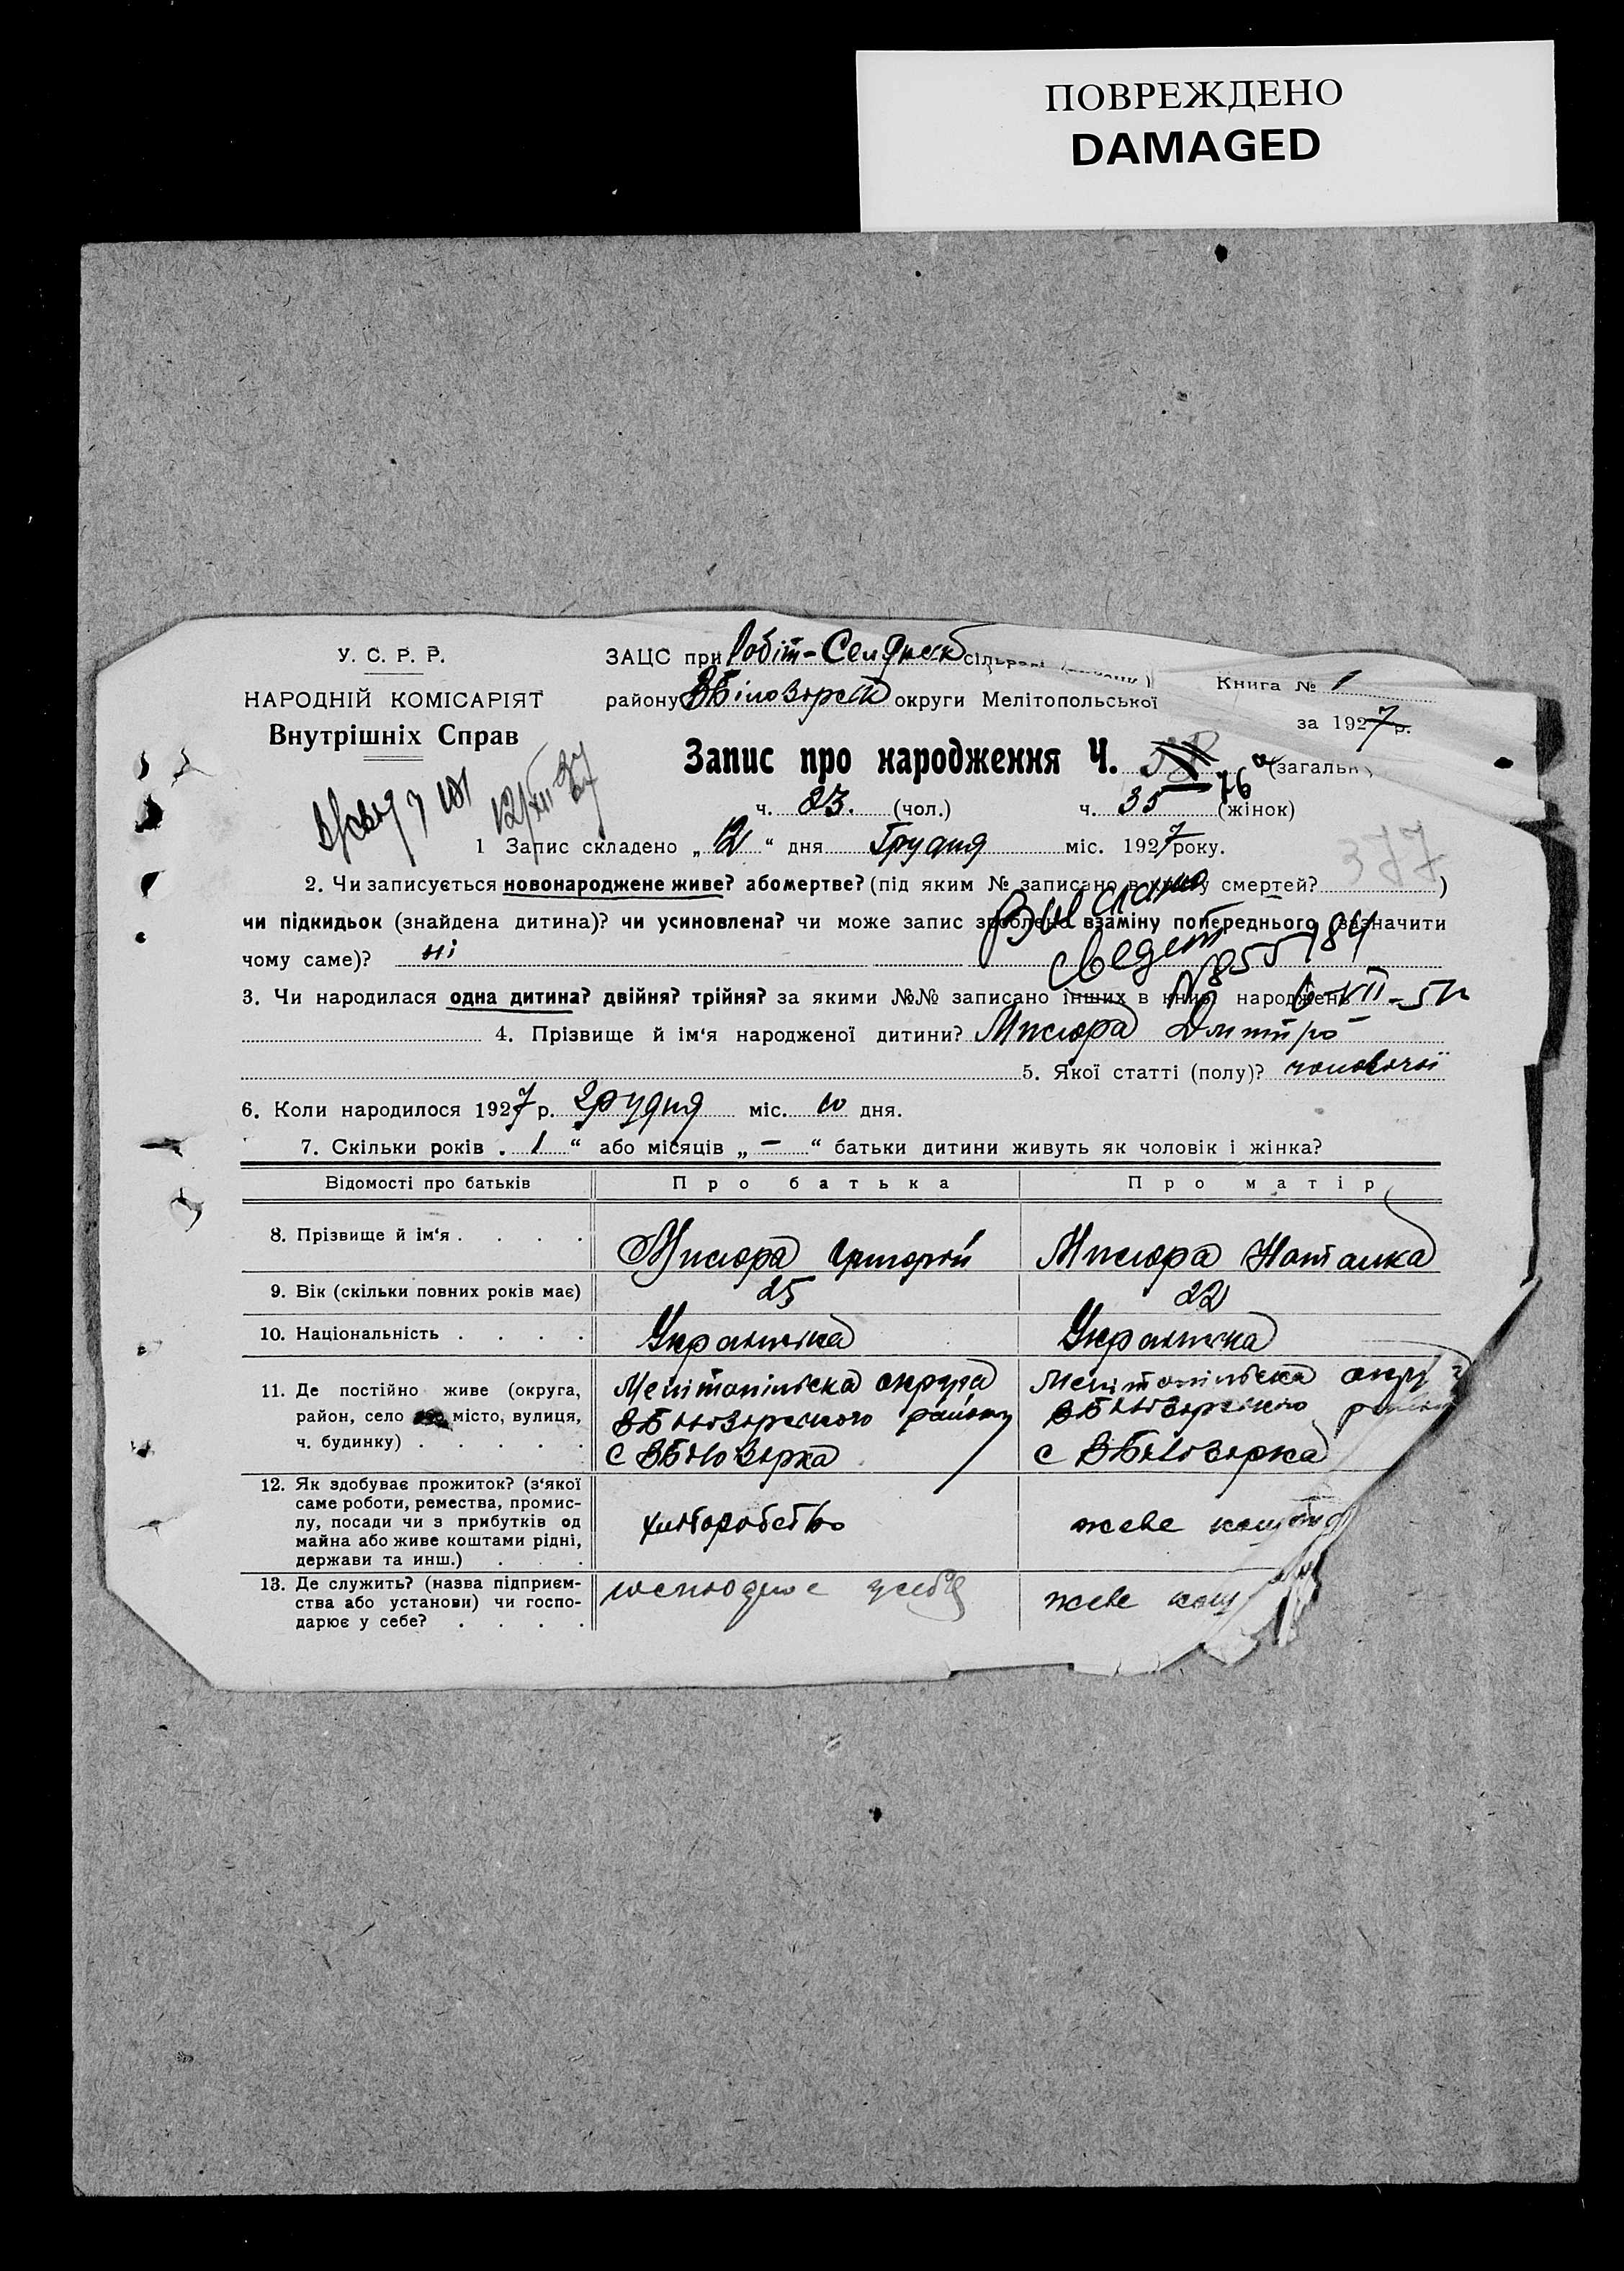 ПОВРЕЖДЕНО
DAMAGED
У. С. Р. Р.
НАРОДНІЙ КОМІСАРІЯТ
Внутрішніх Справ
ЗАЦС при Робіт-Сел
району ВБілозерськ округи Мелітопольської
Книга № 1
за 1927 р.
Запис про народження Ч. 76 (загальн
ч. 23. (чол.) ч. 35 (жінок)
12/XII 27
1 Запис складено „12“ дня Грудня міс. 1927 року.
377
2. Чи записується новонароджене живе? або мертве? (під яким № записано в книгу смертей? )
чи підкидьок (знайдена дитина)? чи усиновлена? чи може запис зроблено взаміну попереднього зазначити
чому саме)? ні
Свидет
№ 855784
3. Чи народилася одна дитина? двійня? трійня? за якими №№ записано інших в книзі народжень
4. Прізвище й ім‘я народженої дитини? Мисюра Дмитро
5. Якої статті (полу)? чоловічої
6. Коли народилося 1927 р. Грудня міс. 10 дня.
7. Скільки років „ 1 “ або місяців „ — “ батьки дитини живуть як чоловік і жінка?
Відомості про батьків Про батька Про матір
8. Прізвище й ім‘я . . . . Мисюра Григорій Мисюра Наталка
9. Вік (скільки повних років має) 25 22
10. Національність . . . . Українська Українська
11. Де постійно живе (округа, Мелітопільска округа Мелітопільска окру
район, село або місто, вулиця, ВБілозерського району ВБілозерського
ч. будинку) . . . . . с ВБілозерка с ВБілозерка
12. Як здобуває прожиток? (з‘якої
саме роботи, ремества, промис-
лу, посади чи з прибутків од хліборобство живе кошто
майна або живе коштами рідні,
держави та инш.) . . .
13. Де служить? (назва підприєм- усебе живе кош
ства або установи) чи госпо-
дарює у себе? . . . .